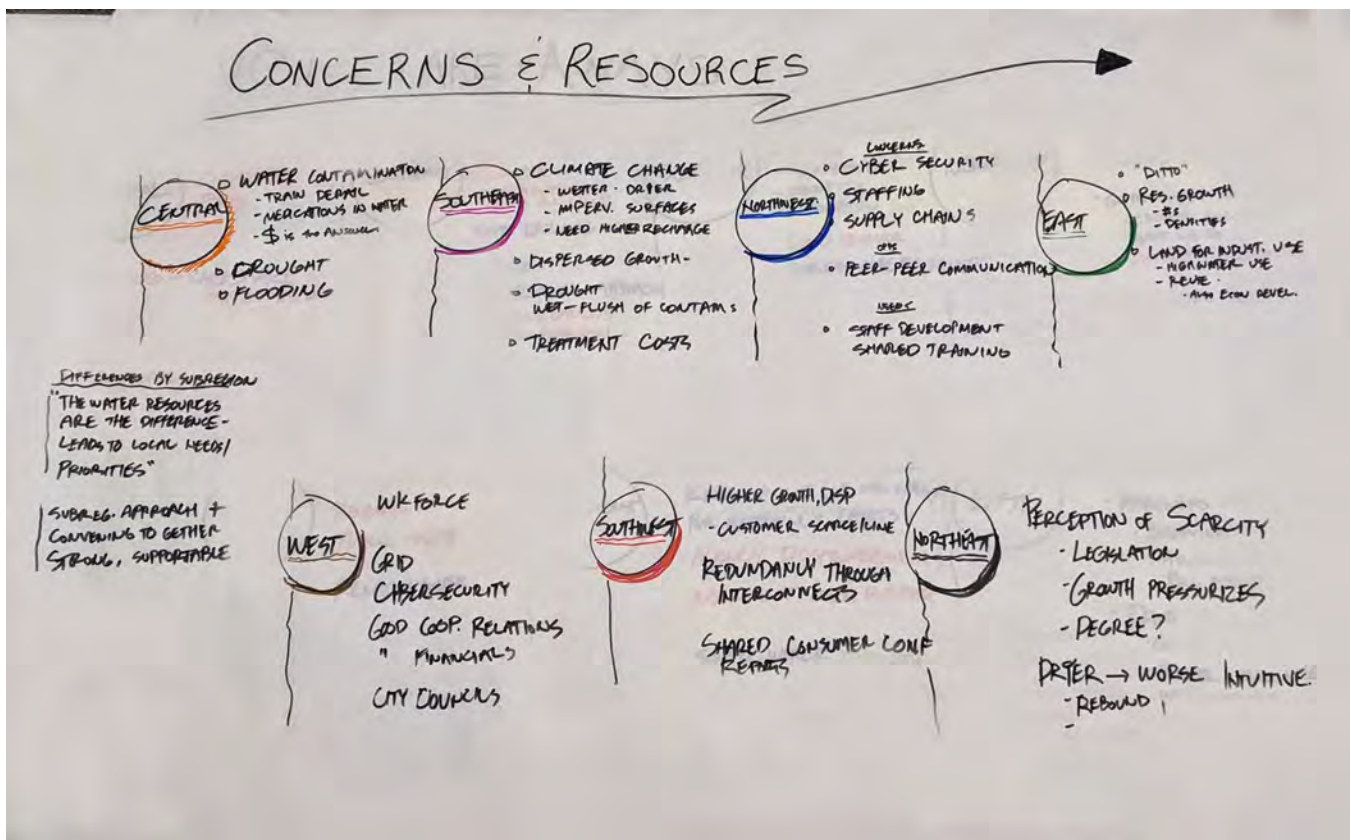 CONCERNS & RESOURCES
CENTRAL
WATER CONTAMINATON
- TRAIN DERAIL
- MEDCATIONS IN WATER
- $ is the ANSWER
DROUGHT
FLOODING
SOUTHEAST
CLIMATE CHANGE
- WETTER · DRYER
- IMPERV. SURFACES
- NEED HIGHER RECHARGE
DISPERSED GROWTH -
DROUGHT
WET - FLUSH OF CONTAMS
TREATMENT COSTS
NORTHWEST
CONCERNS
CYBER SECURITY
STAFFING
SUPPLY CHAINS
PEER-PEER COMMUNICATION
NEEDS
STAFF DEVELOPMENT
SHARED TRAINING
EAST
"DITTO"
RES. GROWTH
- #s
- DENSITIES
LAND FOR INDUST. USE
- HIGH WATER USE
- REUSE ·
- ALSO ECON DEVEL.
DIFFERENCES BY SUBREGION
"THE WATER RESOURCES
ARE THE DIFFERENCE -
LEADS TO LOCAL NEEDS/
PRIORITIES"
SUBREG. APPROACH +
CONVENING TO GETHER
STRONG, SUPPORTABLE
WEST
WKFORCE
GRID
CYBERSECURITY
GOOD COOP. RELATIONS
" FINANCIALS
CITY COUNCILS
SOUTHWEST
HIGHER GROWTH, DISP
- CUSTOMER SCARCE/LINE
REDUNDANCY THROUGH
INTERCONNECTS
SHARED CONSUMER CONF
NORTHEAST
PERCEPTION OF SCARCITY
- LEGISLATION
- GROWTH PRESSURIZES
- DEGREE?
DRYER → WORSE INTUITIVE.
- REBOUND
-